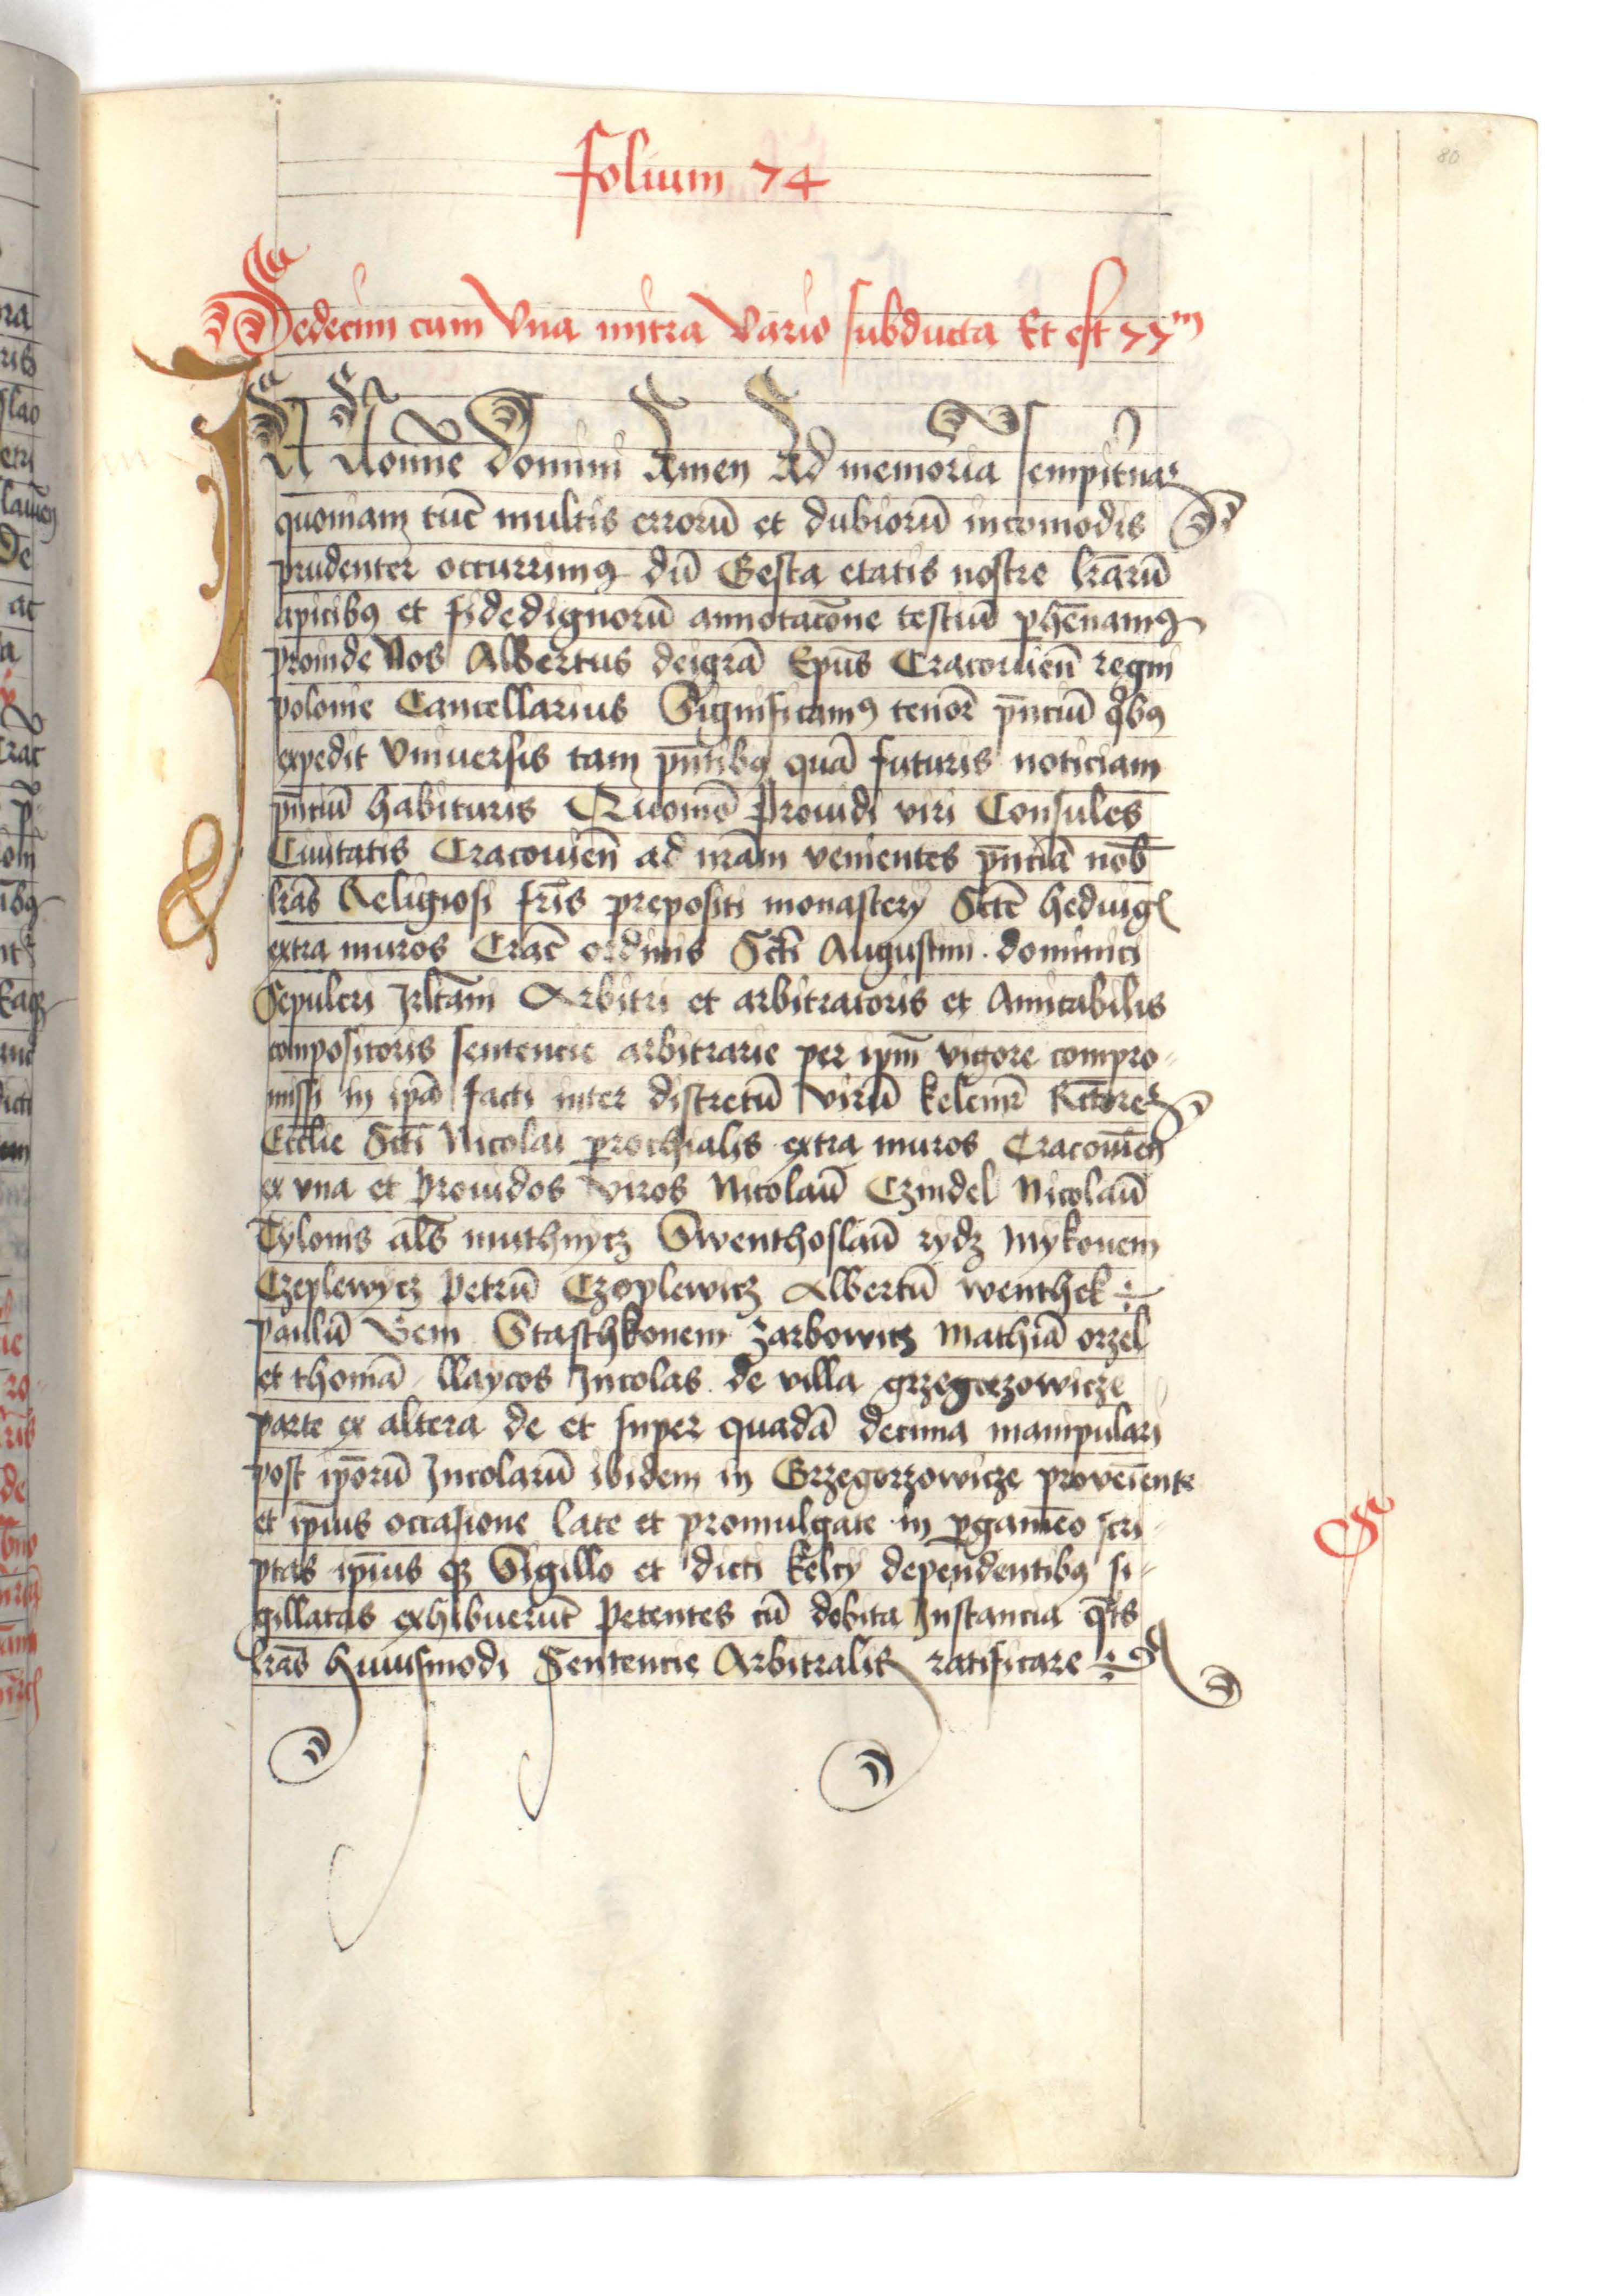 folium 74
80
Sedecim cum Una mitra Vario subducta Et est 77m
IN Nomine domini Amen Ad memoria sempiternā
quoniam tūc multis errorū et dubiorū incomodis
prudenter occurrimꝯ dū Gesta etatis nostre lr̄arū
apicibꝯ et fidedignorū annotac̄one testiū ꝑhēnamꝯ
proinde Nos Albertus deigrā Ep̄us Cracouieñ regni
polonie Cancellarius Significamꝯ tenōre p̄nciū qͥbꝯ
expedit Vniuersis tam p̄ntibꝯ quā futuris noticiam
p̄nciū habituris Quomō Prouidi viri Consules
Ciuitatis Cracouieñ ad nr̄am venientes p̄nciā nob̄
lr̄as Religiosi fr̄is prepositi monastery Sct̄e heduigꝭ
extra muros Crac̄ ordinis Sct̄i Augustini . dominici
Sepulcri Jrlt̄ani Arbitri et arbitratoris et Amicabilis
compositoris sentencie arbitrarie per ip̄m vigore compro
missi in ip̄m facti inter discretū Virū kelemr̄ Rc̄torē
Eccl̄ie Sct̄i Nicolai ꝑrochialis extra muros Cracouieñ
ex vna et Prouidos viros Nicolaū Czindel Nicolaū
Tylonis al̄s muthnycz Swenthoslaū rydz Mykonem
Czeplewycz Petrū Czoplewicz Albertū wenthek
paulū Bem Staschkonem Zarbowicz Mathiā orzel
et thomā llaycos Jncolas de villa grzegorzowicze
parte ex altera de et super quadā decima manipulari
post ip̄orū Jncolarū ibidem in Grzegorzowicze provēiente
et ip̄ius occasione late et promulgate in ꝑgamēo scri
ptas ip̄ius qꝫ Sigillo et dicti kelcy dependentibꝯ si
gillatas exhibuerūt Petentes cū debita Jnstancia qͣts
lr̄as huiusmodi Sentencie Arbitralis ratificare